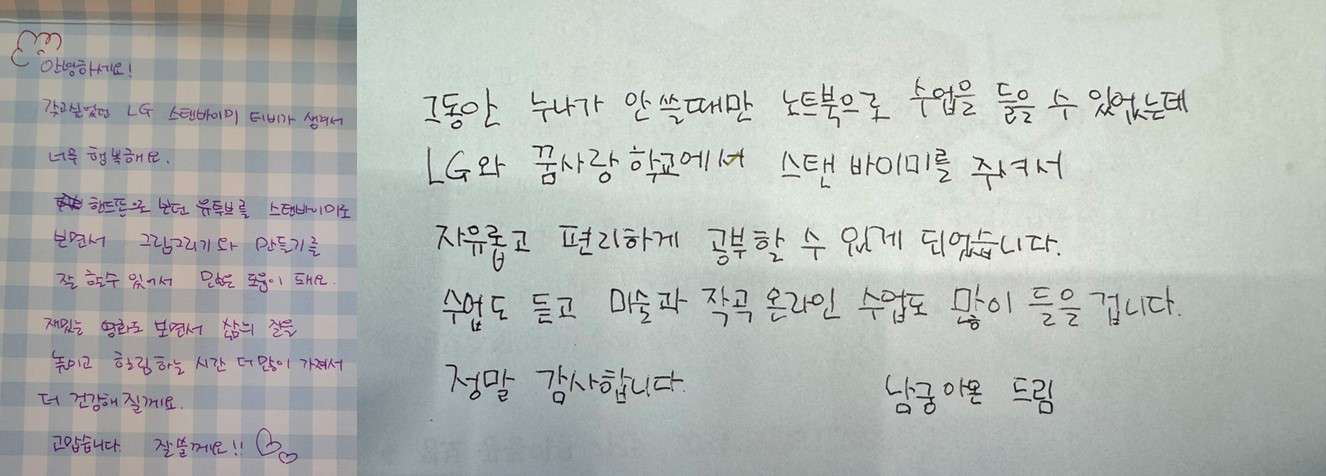 안녕하세요!
갖고싶었던 LG 스탠바이미 티비가 생겨서
너무 행복해요.
핸드폰으로 보던 유튜브를 스탠바이미로
보면서 그림그리기와 만들기를
잘 할수 있어서 많은 도움이 돼요.
재밌는 영화도 보면서 삶의 질을
높이고 힐링하는 시간 더 많이 가져서
더 건강해질게요.
고맙습니다. 잘쓸께요!!
그동안 누나가 안 쓸때만 노트북으로 수업을 들을 수 있었는데
LG와 꿈사랑학교에서 스탠바이미를 주셔서
자유롭고 편리하게 공부할 수 있게 되었습니다.
수업도 듣고 미술과 작곡 온라인 수업도 많이 들을 겁니다.
정말 감사합니다.
남궁아온 드림